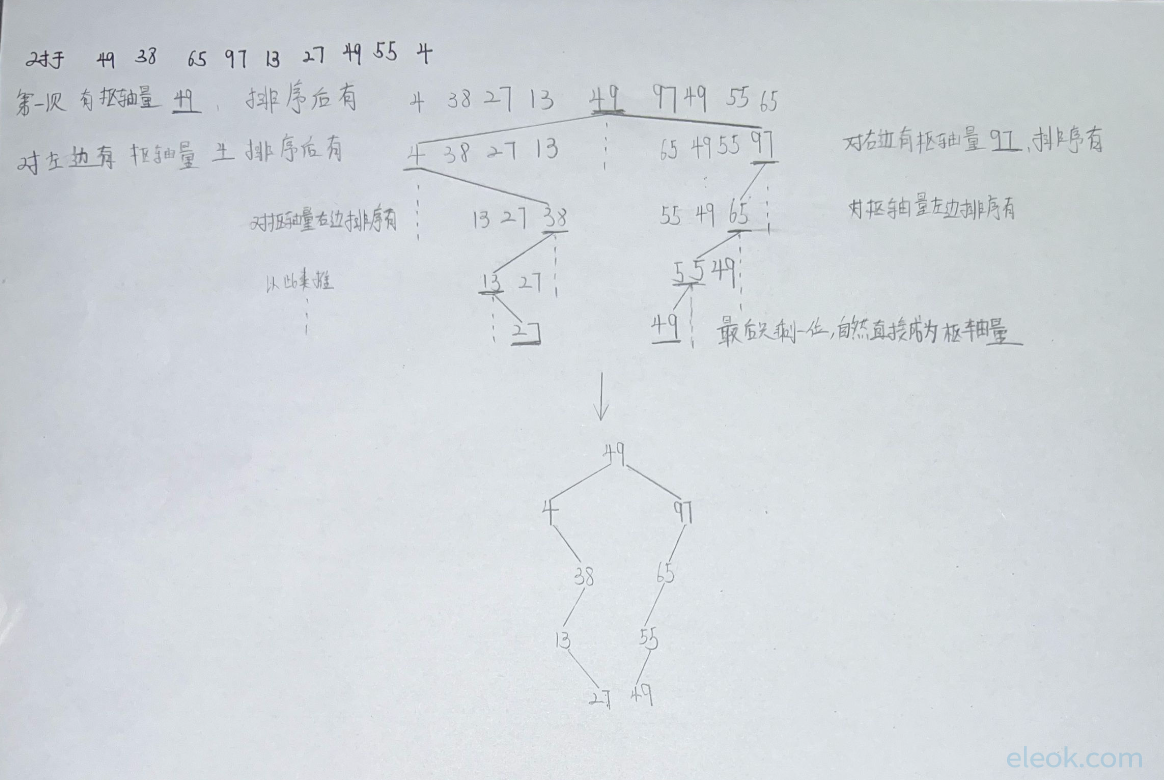 对于 49 38 65 97 13 27 49 55 4
第一次 有枢轴量 49. 排序后有 4 38 27 13 49 97 49 55 65
对左边有 枢轴量 4 排序后有 4 38 27 13 65 49 55 97 对右边有枢轴量 97,排序有
对枢轴量右边排序有 13 27 38 55 49 65 对枢轴量左边排序有
以此类推 13 27 55 49
27 49 最后只剩一位,自然直接成为枢轴量
49
4 97
38 65
13 55
27 49
eleok.com